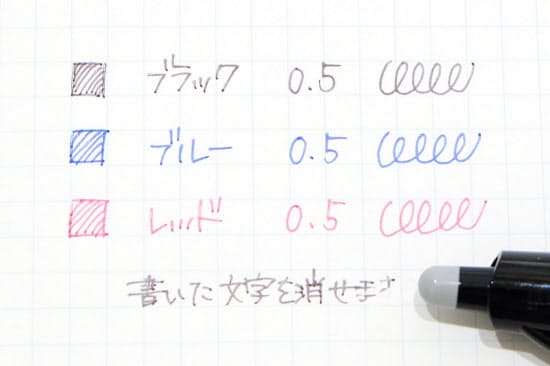 ブラック 0.5
ブルー 0.5
レッド 0.5
書いた文字を消せます